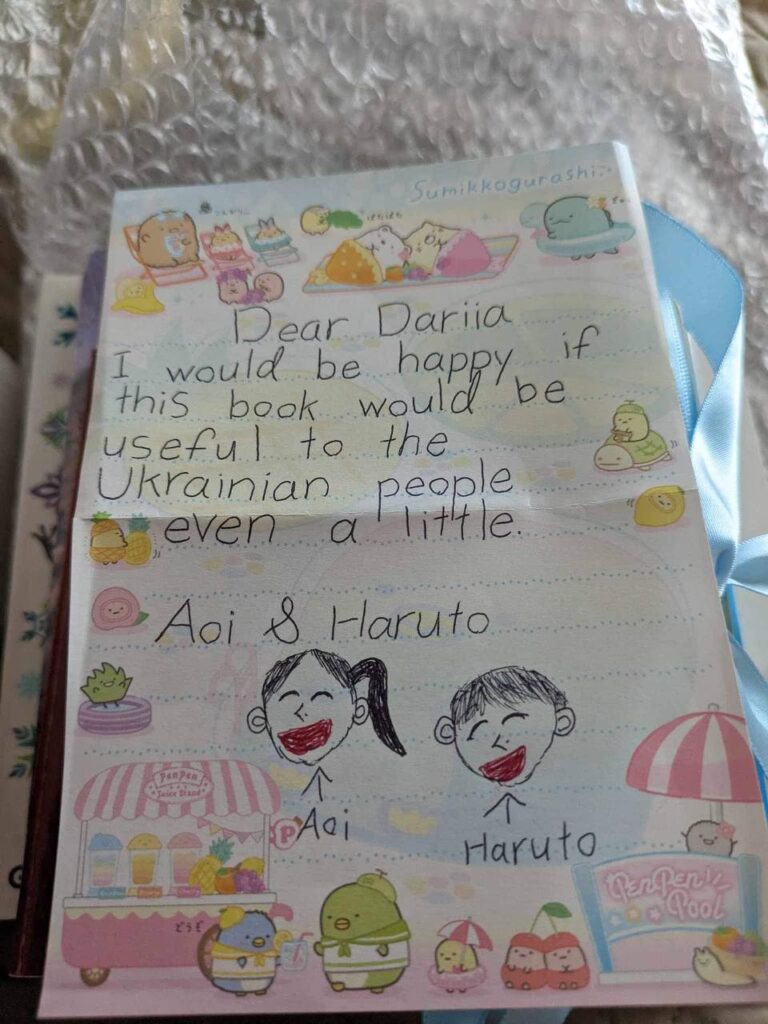 Sumikkogurashi
Dear Dariia
I would be happy if
this book would be
useful to the
Ukrainian people
even a little.
Aoi & Haruto
Aoi
Haruto
PenPen
Juice Stand
P
どうぞ
PenPen
Pool